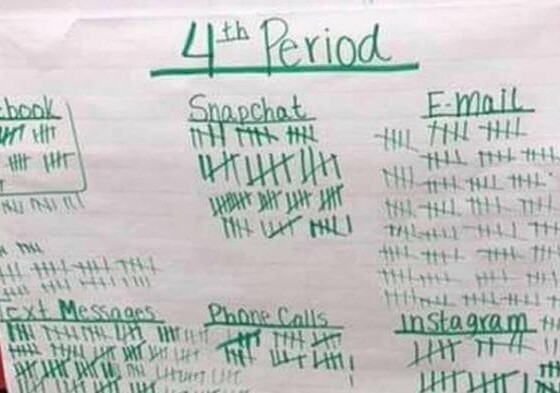 4th Period
book
Snapchat
E-mail
ext Messages
Phone Calls
Instagram